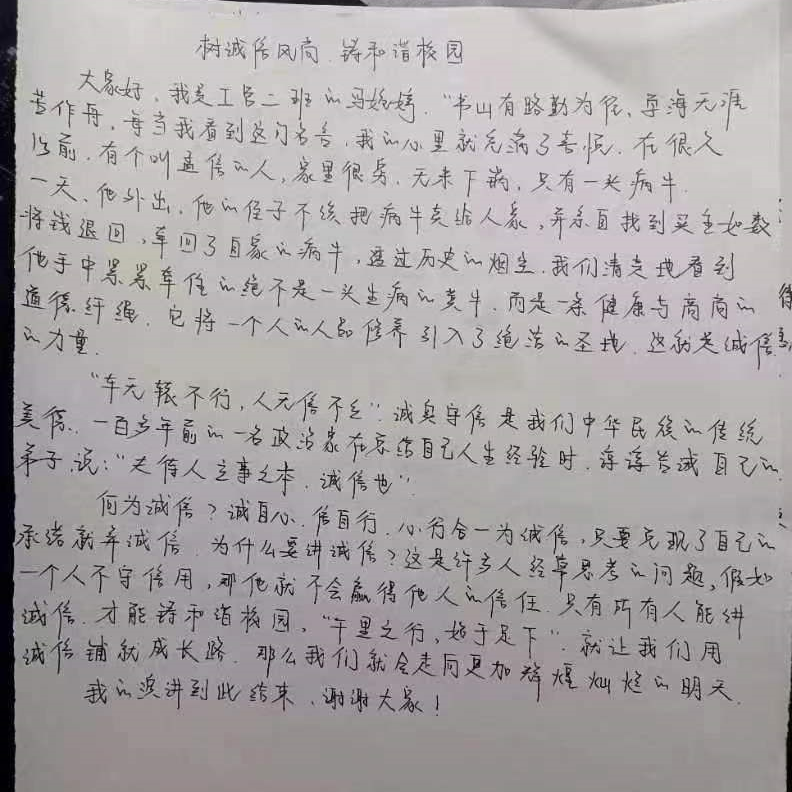 树诚信风尚 铸和谐校园
大家好,我是工管二班的马婷婷,“书山有路勤为径,学海无涯
苦作舟,每当我看到这句名言,我的心里就充满了喜悦.在很久
以前,有个叫孟信的人,家里很穷,无米下锅,只有一头病牛.
一天,他外出,他的侄子不续把病牛卖给人家,并亲自找到买主如数
将钱退回,牵回了自家的病牛,透过历史的烟尘.我们清楚地看到
他手中紧紧牵住的绝不是一头生病的黄牛.而是一条健康与高尚的
道德纤绳.它将一个人的人品修养引入了绝落的圣地.这就是诚信
的力量.
“车无辕不行,人无信不立”.诚实守信是我们中华民族的传统
美德.一百多年前的一名政治家在总结自己人生经验时,谆谆告诫自己的
弟子,说:“夫待人立事之本,诚信也”.
何为诚信?诚自心.信自行.心行合一为诚信,只要兑现了自己的
承诺就弃诚信.为什么要讲诚信?这是许多人经草思考的问题,假如
一个人不守信用,那他就不会赢得他人的信任.只有所有人能讲
诚信.才能铸和谐校园,“千里之行,始于足下”.就让我们用
诚信铺就成长路.那么我们就会走向更加辉煌灿烂的明天.
我的演讲到此结束,谢谢大家!